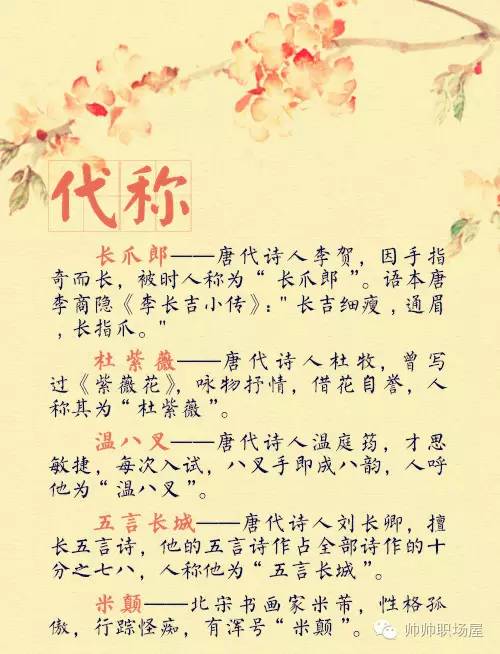 代称
长爪郎——唐代诗人李贺，因手指
奇而长，被时人称为“长爪郎”。语本唐
李商隐《李长吉小传》："长吉细瘦，通眉
，长指爪。"
杜紫薇——唐代诗人杜牧，曾写
过《紫薇花》，咏物抒情，借花自誉，人
称其为“杜紫薇”。
温八叉——唐代诗人温庭筠，才思
敏捷，每次入试，八叉手即成八韵，人呼
他为“温八叉”。
五言长城——唐代诗人刘长卿，擅
长五言诗，他的五言诗作占全部诗作的十
分之七八，人称他为“五言长城”。
米颠——北宋书画家米芾，性格孤
傲，行踪怪痴，有浑号“米颠”。
帅帅职场屋